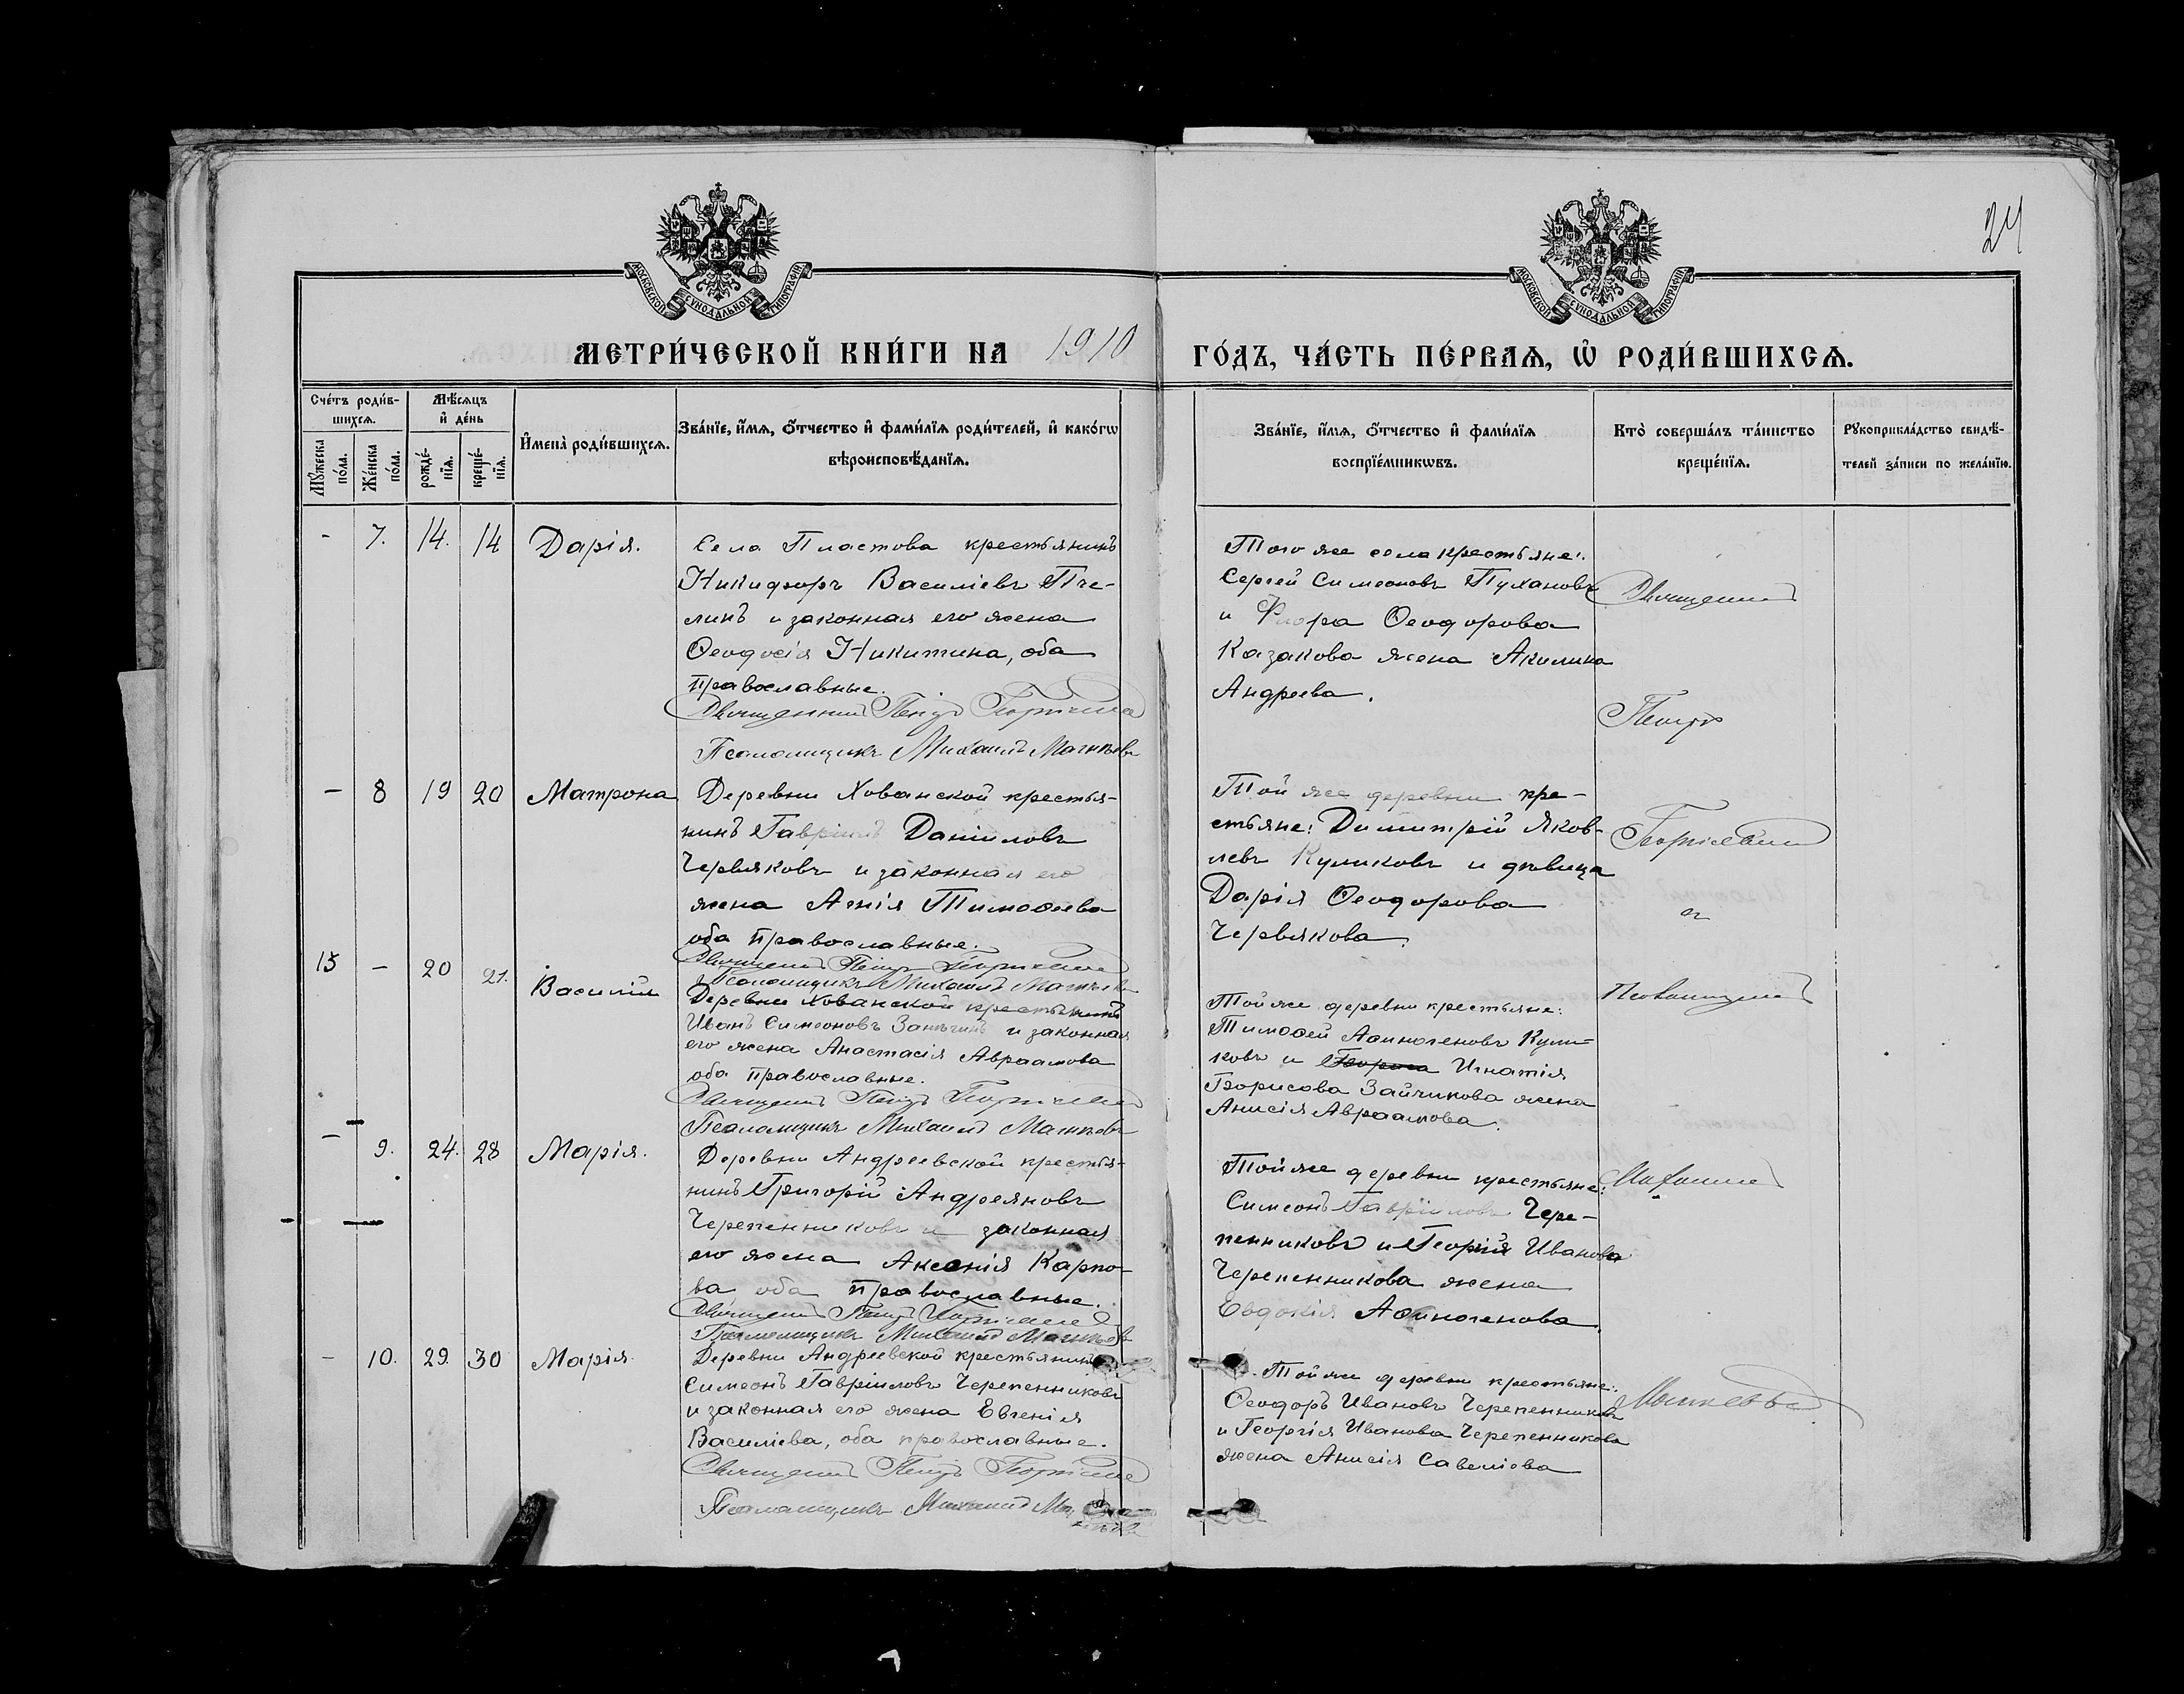 24
МОСКОВСКОЙ СѴНОДАЛЬНОЙ ТИПОГРАФІИ
МОСКОВСКОЙ СѴНОДАЛЬНОЙ ТИПОГРАФІИ
МЕТРИ́ЧЕСКОЙ КНИ́ГИ НА 1910
ГО́ДЪ, ЧА́СТЬ ПЕ́РВАѦ, Ѡ҆ РОДИ́ВШИХСѦ.
Сче́тъ роди́в-
шихсѧ.
Мꙋ́жеска
по́ла.
Же́нска
по́ла.
Мѣ́сѧцъ
и҆ де́нь
рожде́-
нїѧ.
креще́-
нїѧ.
И҆мена̀ роди́вшихсѧ.
Зва́нїе, и҆́мѧ, ѻ҆́тчество и҆ фами́лїѧ роди́телей, и҆ како́гѡ
вѣроисповѣ́данїѧ.
Зва́нїе, и҆́мѧ, ѻ҆́тчество и҆ фами́лїѧ
воспрїе́мникѡвъ.
Кто̀ соверша́лъ та́инство
креще́нїѧ.
Рꙋкоприкла́дство свидѣ́-
телей за́писи по жела́нїю.
- 7. 14. 14 Дарія.
Села Пластова крестьянинъ
Никифоръ Василіевъ Пче-
линъ и законная его жена
Ѳеодосія Никитина, оба
православные.
Священникъ Петръ Георгіевскій
Псаломщикъ Михаилъ
Того же села крестьяне:
Сергей Симеоновъ Пухановъ
и Флора Ѳеодорова
Казакова жена Акилина
Андреева.
Священникъ
Петръ
Георгіевскій
съ
Псаломщикомъ
Михаиломъ
– 8 19 20 Матрона
Деревни Хованской крестья-
нинъ Гавріилъ Даніиловъ
Червяковъ и законная его
жена Агнія Тимоѳеева
оба православные.
Священникъ Петръ Георгіевскій
Псаломщикъ Михаилъ
Той же деревни кре-
стьяне: Димитрій Яков-
левъ Куликовъ и дѣвица
Дарія Ѳеодорова
Червякова.
15 – 20 21. Василій
Деревни Хованской крестьянинъ
Иванъ Симеоновъ и законная
его жена Анастасія Авраамова
оба православные.
Священникъ Петръ Георгіевскій
Псаломщикъ Михаилъ
Той же деревни крестьяне:
Тимоѳей Аѳиногеновъ Кули-
ковъ и Игнатія
Борисова Зайчикова жена
Анисія Авраамова.
– 9. 24. 28 Марія.
Деревни Андреевской крестья-
нинъ Григорій Андреяновъ
Черепенниковъ и законная
его жена Аксенія Карпо-
ва оба православные.
Священникъ Петръ Георгіевскій
Псаломщикъ Михаилъ
Той же деревни крестьяне:
Симеонъ Гавріиловъ Чере-
пенниковъ и Георгія Иванова
Черепенникова жена
Евдокія Аѳиногенова.
– 10. 29. 30 Марія.
Деревни Андреевской крестьянинъ
Симеонъ Гавріиловъ Черепенниковъ
и законная его жена Евгенія
Василіева, оба православные.
Священникъ Петръ Георгіевскій
Псаломщикъ Михаилъ
Той же деревни крестьяне:
Ѳеодоръ Ивановъ Черепенниковъ
и Георгія Иванова Черепенникова
жена Анисія Савеліева